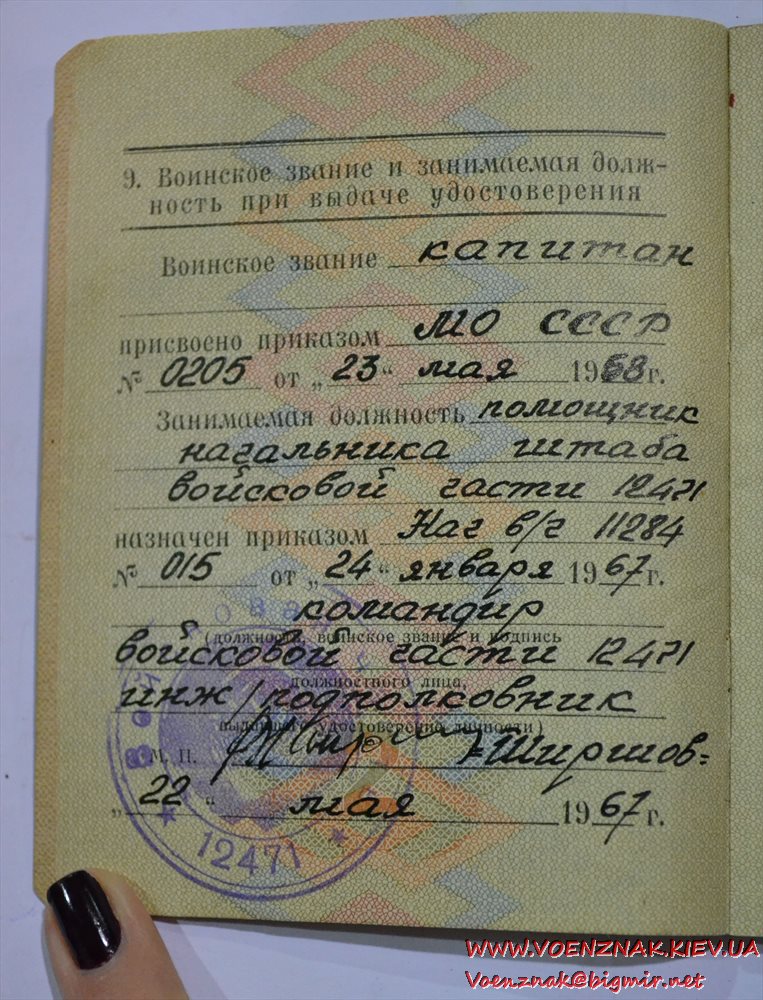 9. Воинское звание и занимаемая долж-
ность при выдаче удостоверения
Воинское звание капитан
присвоено приказом МО СССР
№ 0205 от „23“ мая 1963 г.
Занимаемая должность помощник
начальника штаба
войсковой части 12471
назначен приказом Нач в/ч 11284
№ 015 от „24“ января 1967 г.
командир
(должность, воинское звание и подпись
войсковой части 12471
должностного лица,
инж/подполковник
выдавшего удостоверение личности)
М. П. /Ширшов=
„22“ мая 1967 г.
* 12471 *
WWW.VOENZNAK.KIEV.UA
Voenznak@bigmir.net